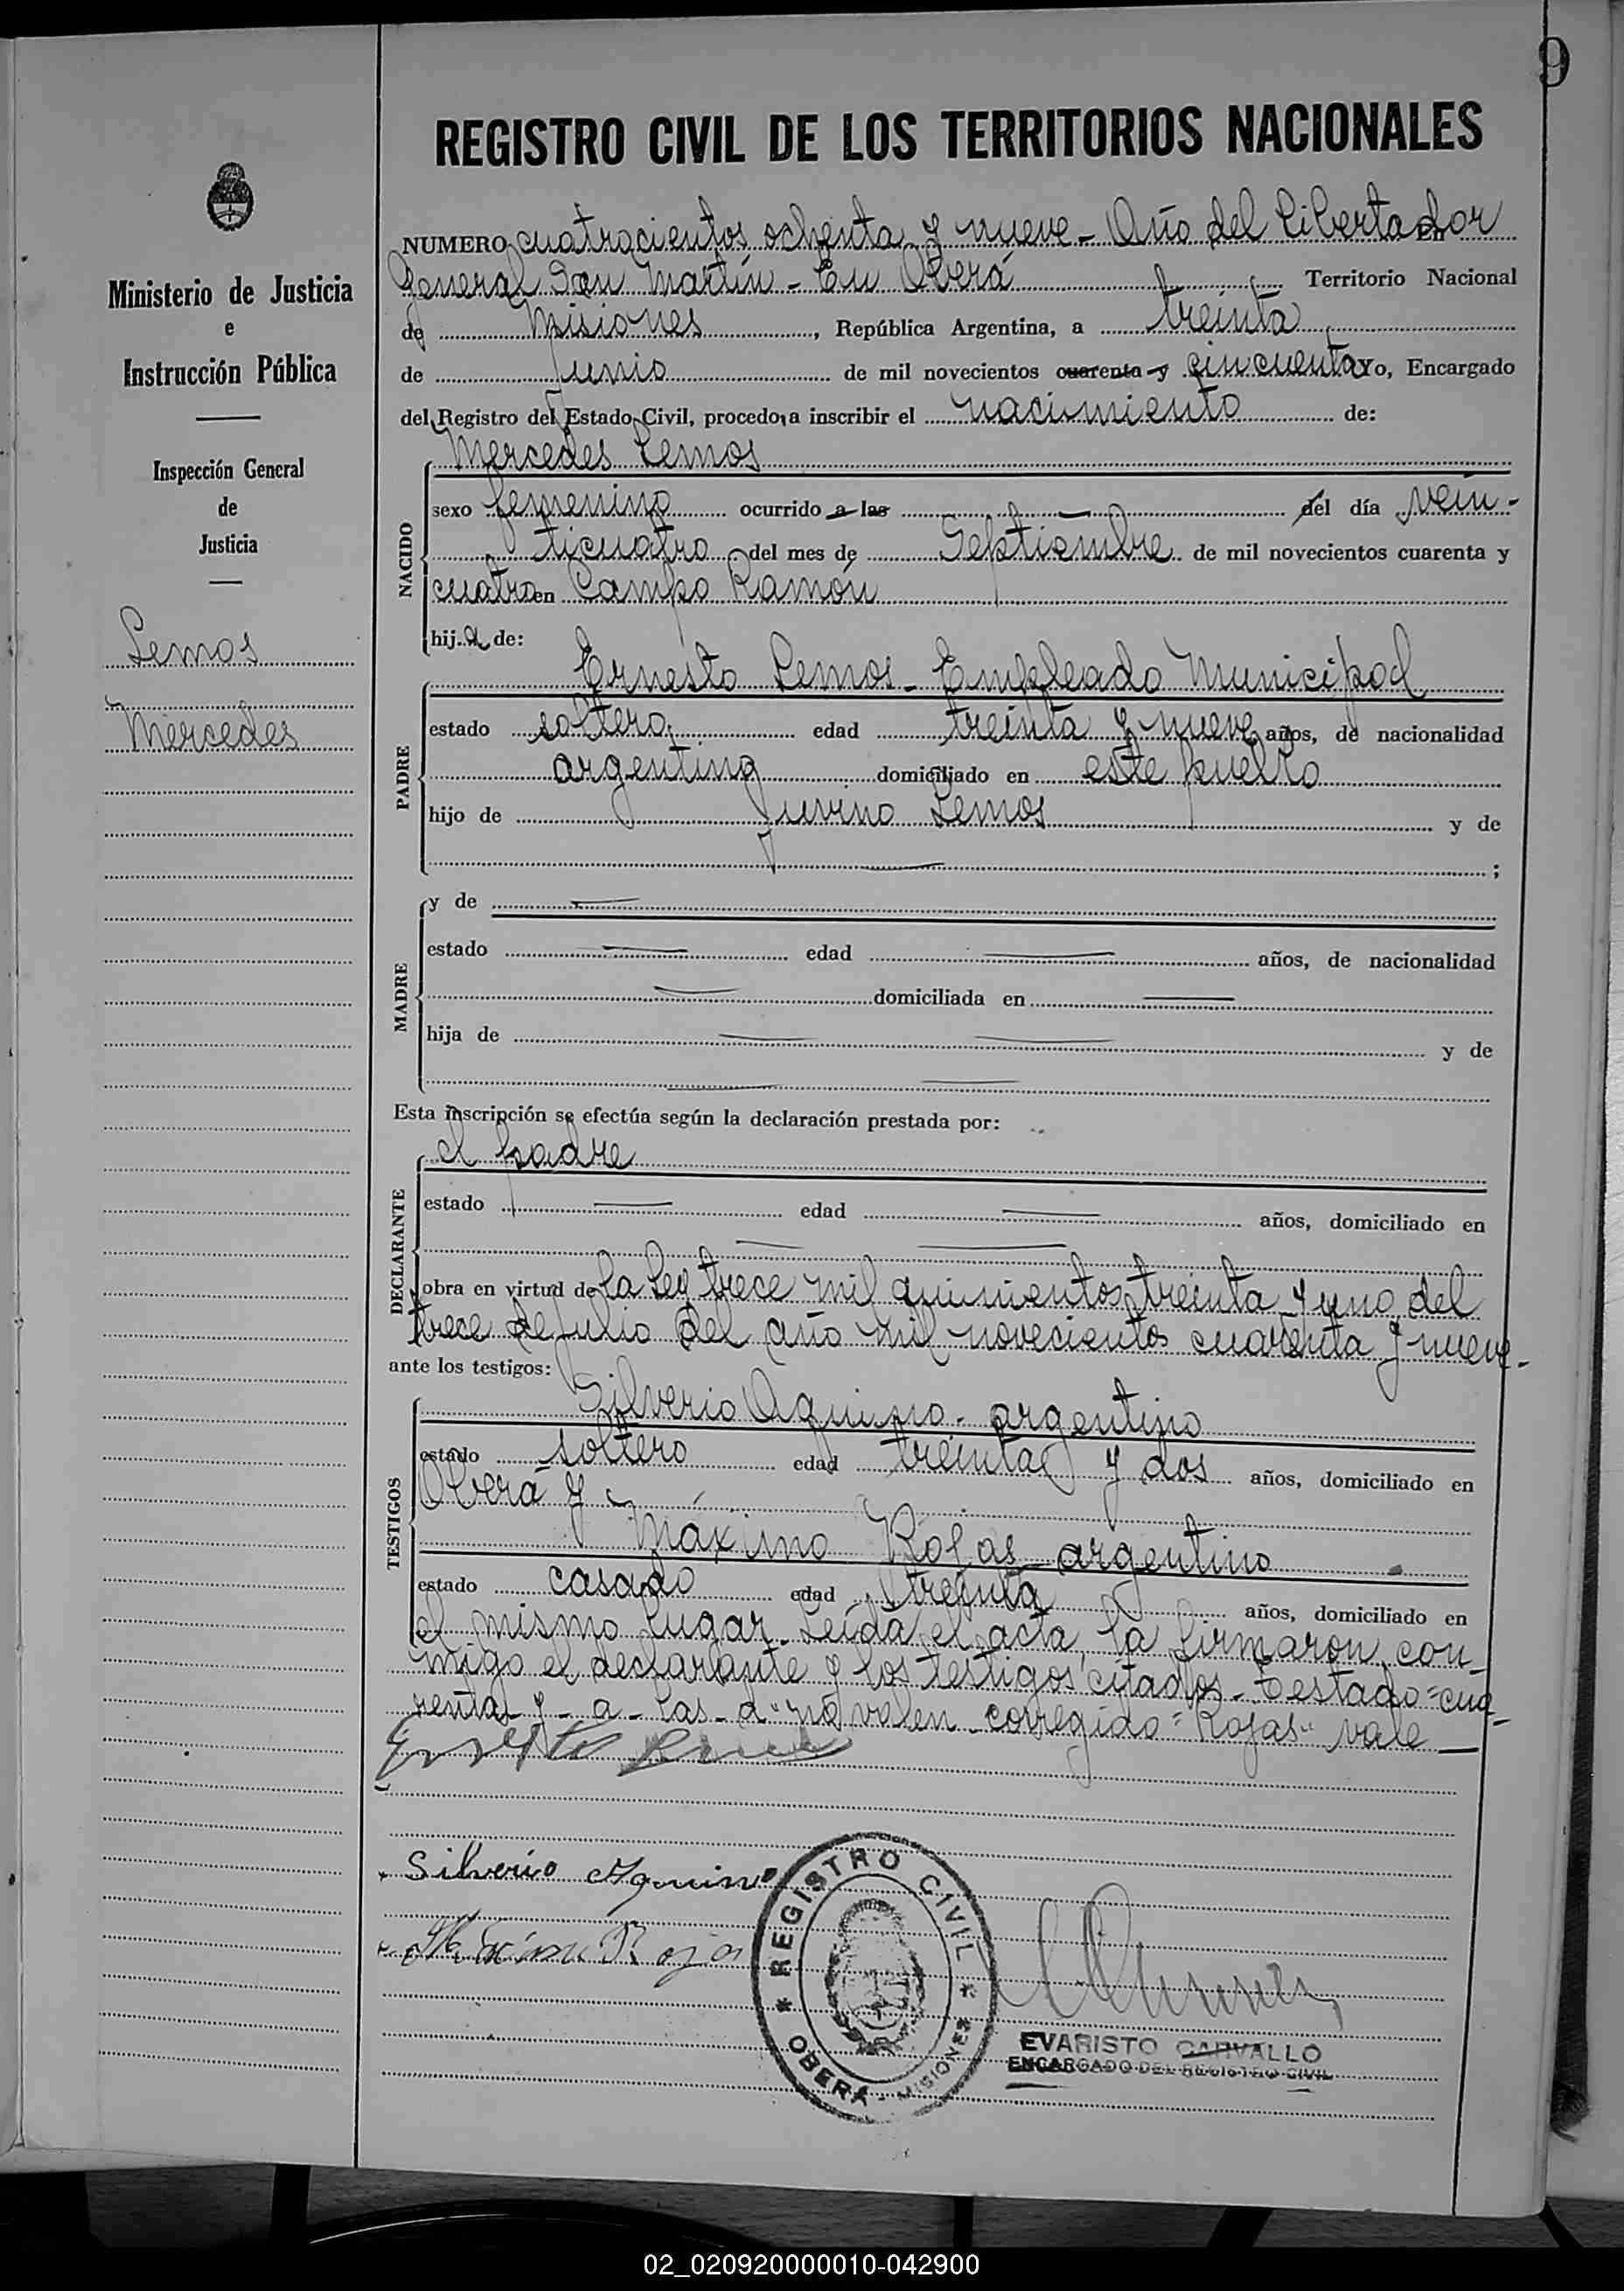 9
REGISTRO CIVIL DE LOS TERRITORIOS NACIONALES
Ministerio de Justicia
e
Instrucción Pública
Inspección General
de
Justicia
Lemos
Mercedes
NUMERO cuatrocientos ochenta y nueve - Año del Libertador En
General San Martín - En Oberá Territorio Nacional
de Misiones, República Argentina, a treinta
de Junio de mil novecientos cuarenta y cincuenta Yo, Encargado
del Registro del Estado Civil, procedo a inscribir el nacimiento de:
Mercedes Lemos
NACIDO
sexo femenino ocurrido a las — del día vein-
ticuatro del mes de Septiembre de mil novecientos cuarenta y
cuatro en Campo Ramón
hija de:
Ernesto Lemos - Empleado Municipal
PADRE
estado soltero edad treinta y nueve años, de nacionalidad
argentina domiciliado en este pueblo
hijo de Juvino Lemos y de
— ;
MADRE
y de —
estado — edad — años, de nacionalidad
— domiciliada en —
hija de — — y de
— —
Esta inscripción se efectúa según la declaración prestada por:
el padre
DECLARANTE
estado — edad — años, domiciliado en
— —
obra en virtud de la Ley trece mil quinientos treinta y uno del
trece de Julio del año mil novecientos cuarenta y nueve-
ante los testigos:
Silverio Aquino - argentino
TESTIGOS
estado soltero edad treinta y dos años, domiciliado en
Oberá y
Máximo Rojas argentino
estado casado edad treinta años, domiciliado en
el mismo lugar. Leída el acta, la firmaron con-
migo el declarante y los testigos citados - Testado = cua-
renta y - a - las - d" no valen - corregido = Rojas" vale —
Ernesto Lemos
Silverio Aquino
Máximo Rojas
REGISTRO CIVIL
OBERÁ - MISIONES
EVARISTO CARVALLO
ENCARGADO DEL REGISTRO CIVIL
02_020920000010-042900